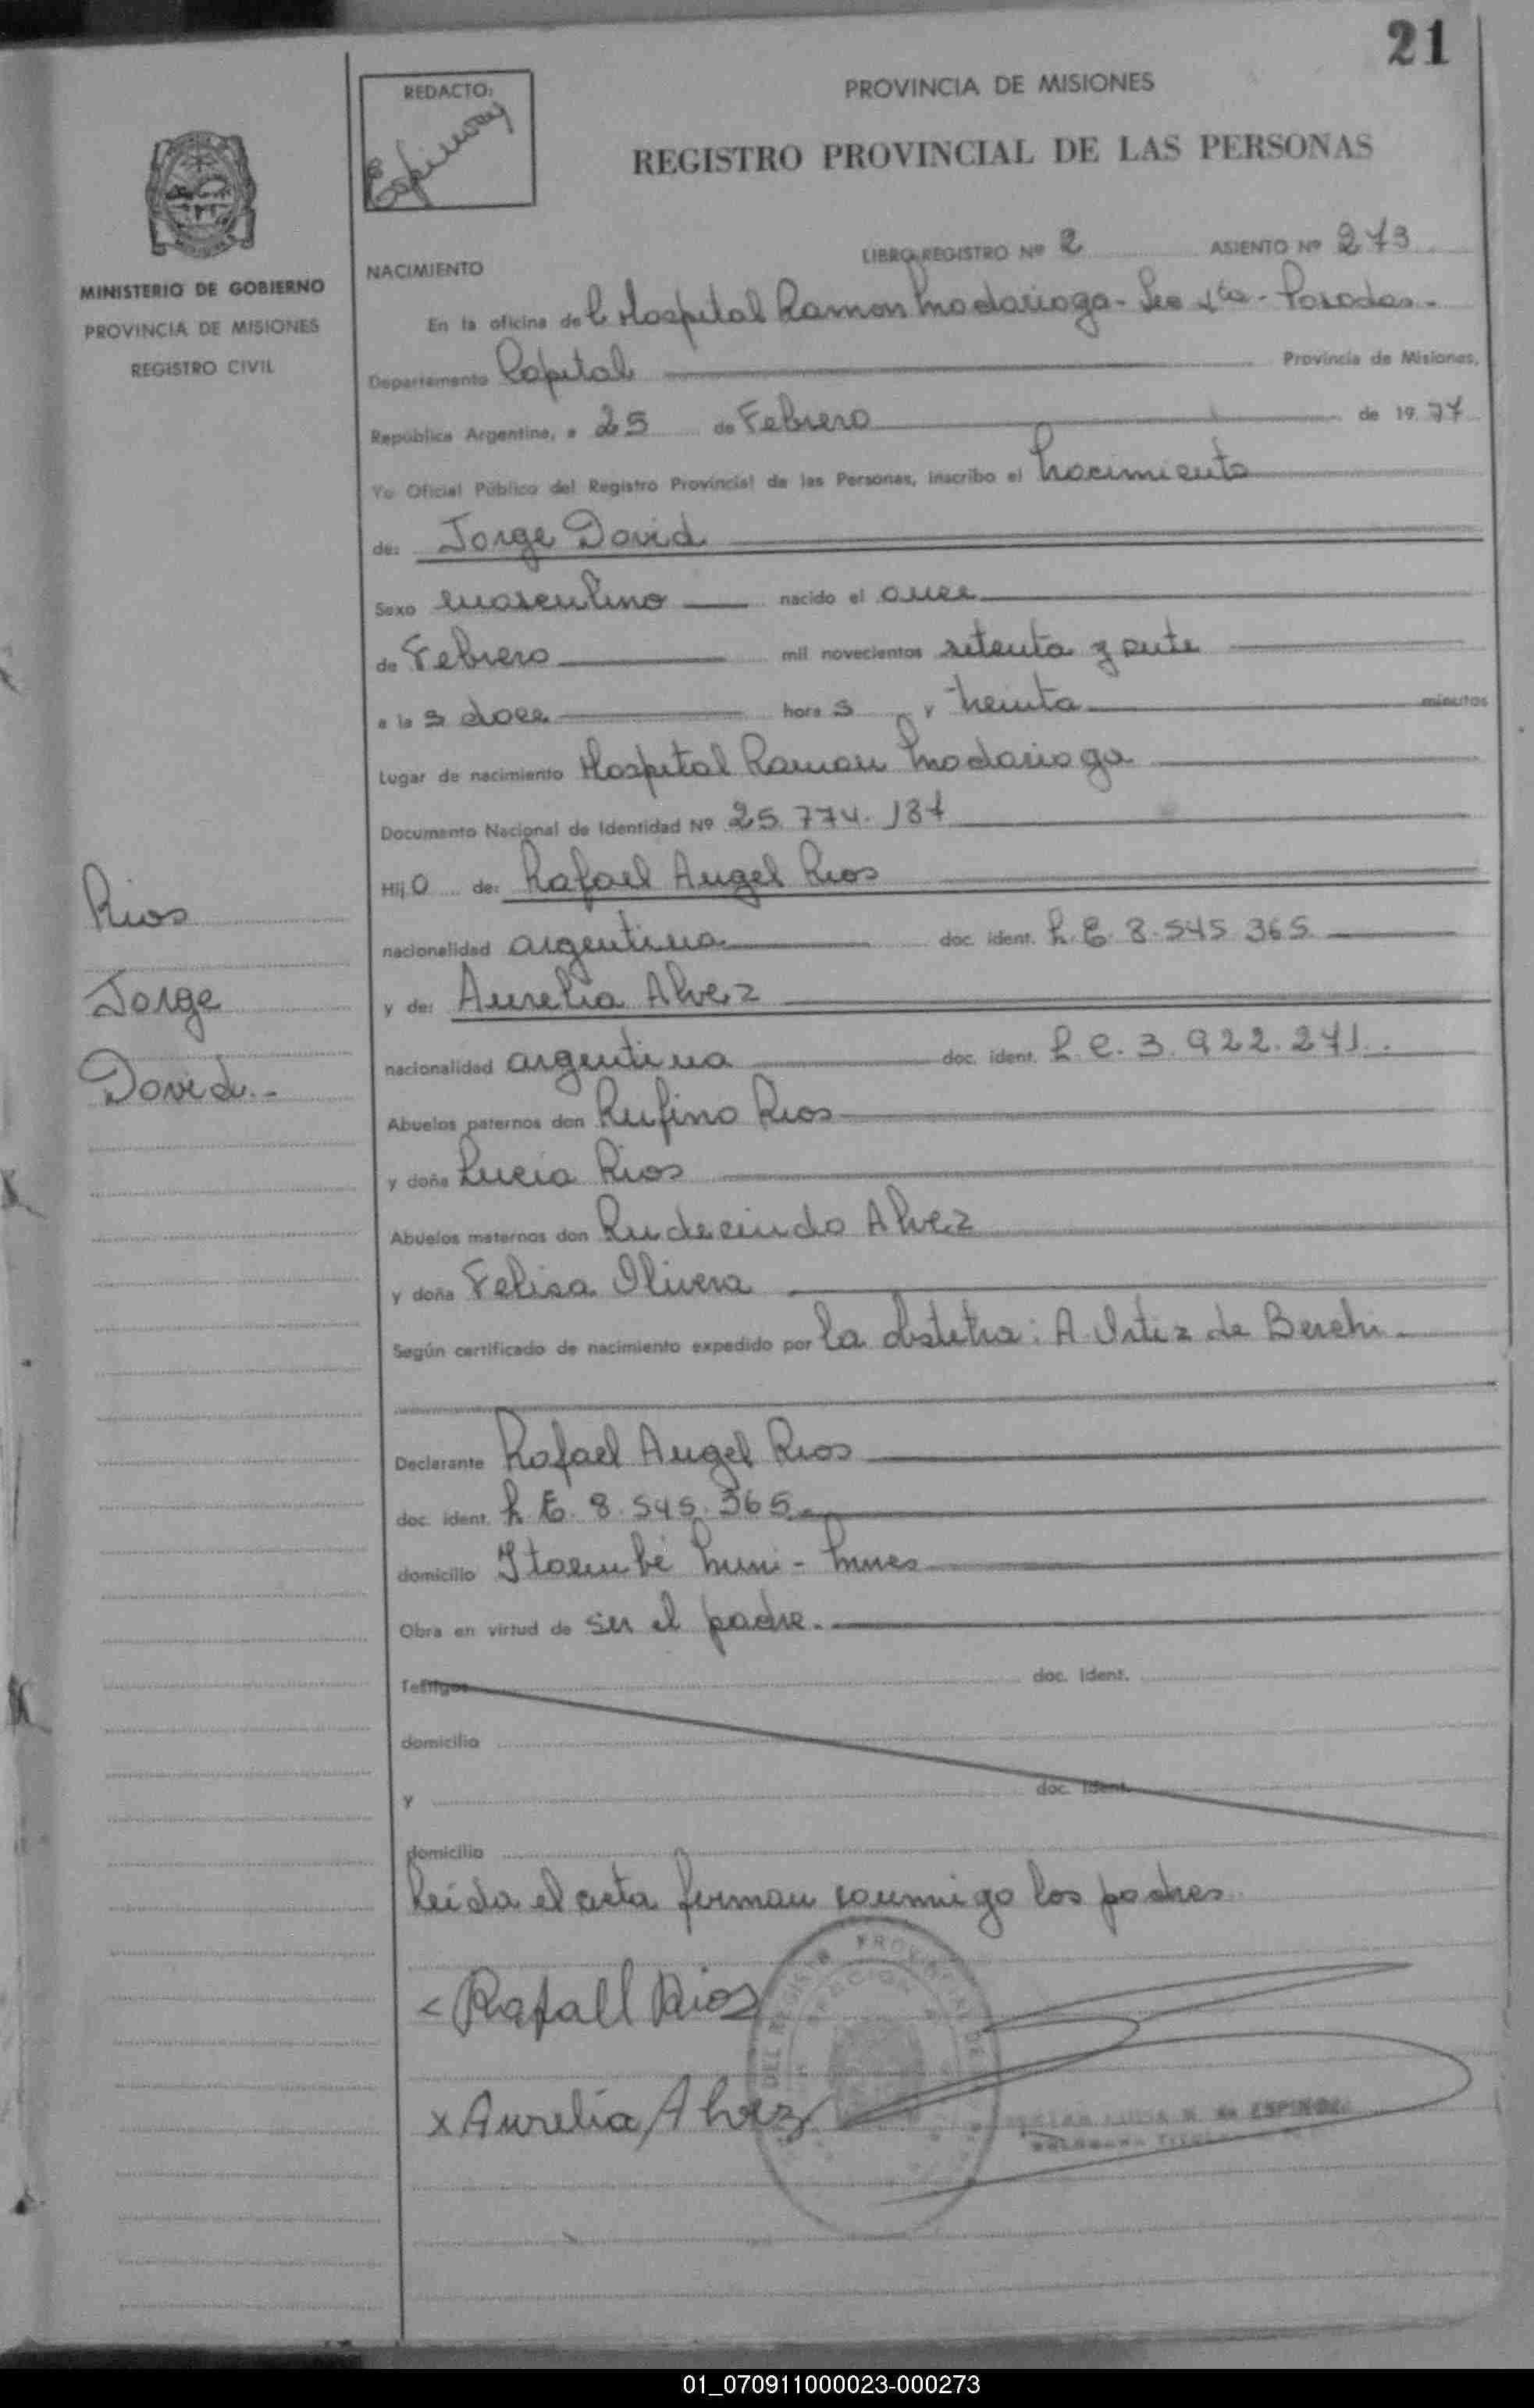 21
REDACTO:
Espinoza
PROVINCIA DE MISIONES
REGISTRO PROVINCIAL DE LAS PERSONAS
MINISTERIO DE GOBIERNO
PROVINCIA DE MISIONES
REGISTRO CIVIL
LIBRO REGISTRO Nº 2 ASIENTO Nº 273
NACIMIENTO
En la oficina del Hospital Ramon Madariaga - Sec 4ta - Posadas.-
Departamento Capital Provincia de Misiones,
República Argentina, a 25 de Febrero de 1977
Yo Oficial Público del Registro Provincial de las Personas, inscribo el Nacimiento
de: Jorge David
Sexo masculino nacido el once
de Febrero mil novecientos setenta y siete
a las doce horas y treinta minutos
Lugar de nacimiento Hospital Ramon Madariaga
Documento Nacional de Identidad Nº 25.774.187
Hijo de: Rafael Angel Rios
nacionalidad argentina doc. ident. L.E. 8.545.365
y de: Aurelia Alvez
nacionalidad argentina doc. ident. L.C. 3.922.271.
Abuelos paternos don Rufino Rios
y doña Lucia Rios
Abuelos maternos don Rudecindo Alvez
y doña Felisa Olivera
Según certificado de nacimiento expedido por la obstetra: A. Ortiz de Berchi.
Declarante Rafael Angel Rios
doc. ident. L.E. 8.545.365.
domicilio Itaembé Mini - Mnes
Obra en virtud de ser el padre.
Testigos doc. ident.
domicilio
y doc. ident.
domicilio
Leida el acta firman conmigo los padres
Rafall Rios
x Aurelia Alvez
ESPINOZA
Rios
Jorge
David.-
01_070911000023-000273